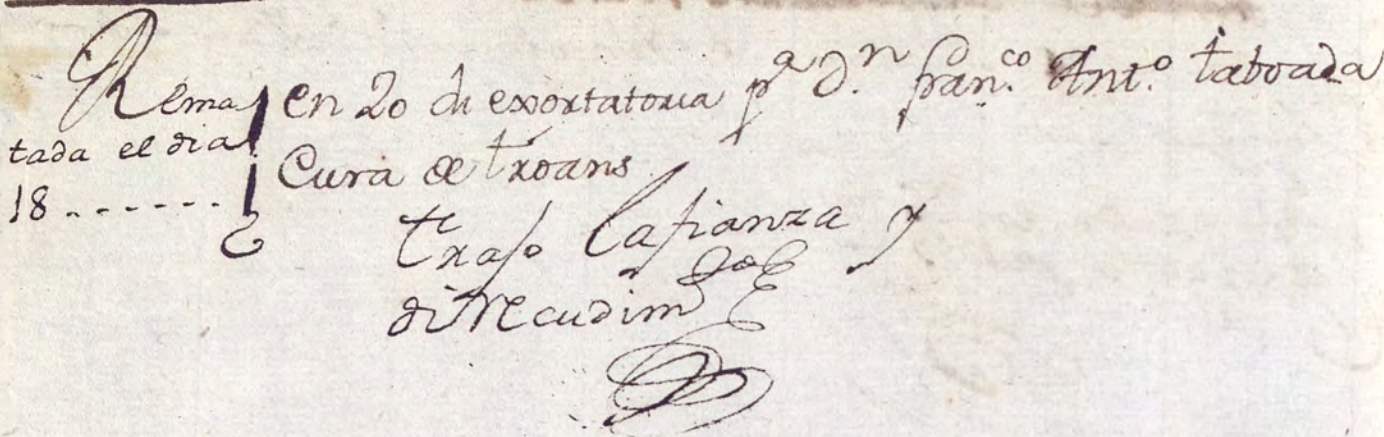 Rema
tada el dia
18 - - - - - -
en 20 di exortatoria pa Dn franco Anto taboada
Cura de troans
traso la fianza y
di recudimto